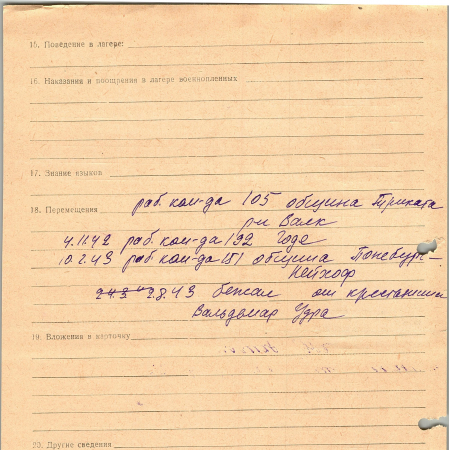 15. Поведение в лагере:
16. Наказания и поощрения в лагере военнопленных
17. Знание языков
18. Перемещения раб. ком-да 105 община Триката
р-н Валк
4.11.42 раб. ком-да 192 Годе
10.2.43 раб ком-да 151 община
Нейхоф
2.8.43 бежал от крестьянина
Вальдемар Удра
19. Вложения в карточку
20. Другие сведения